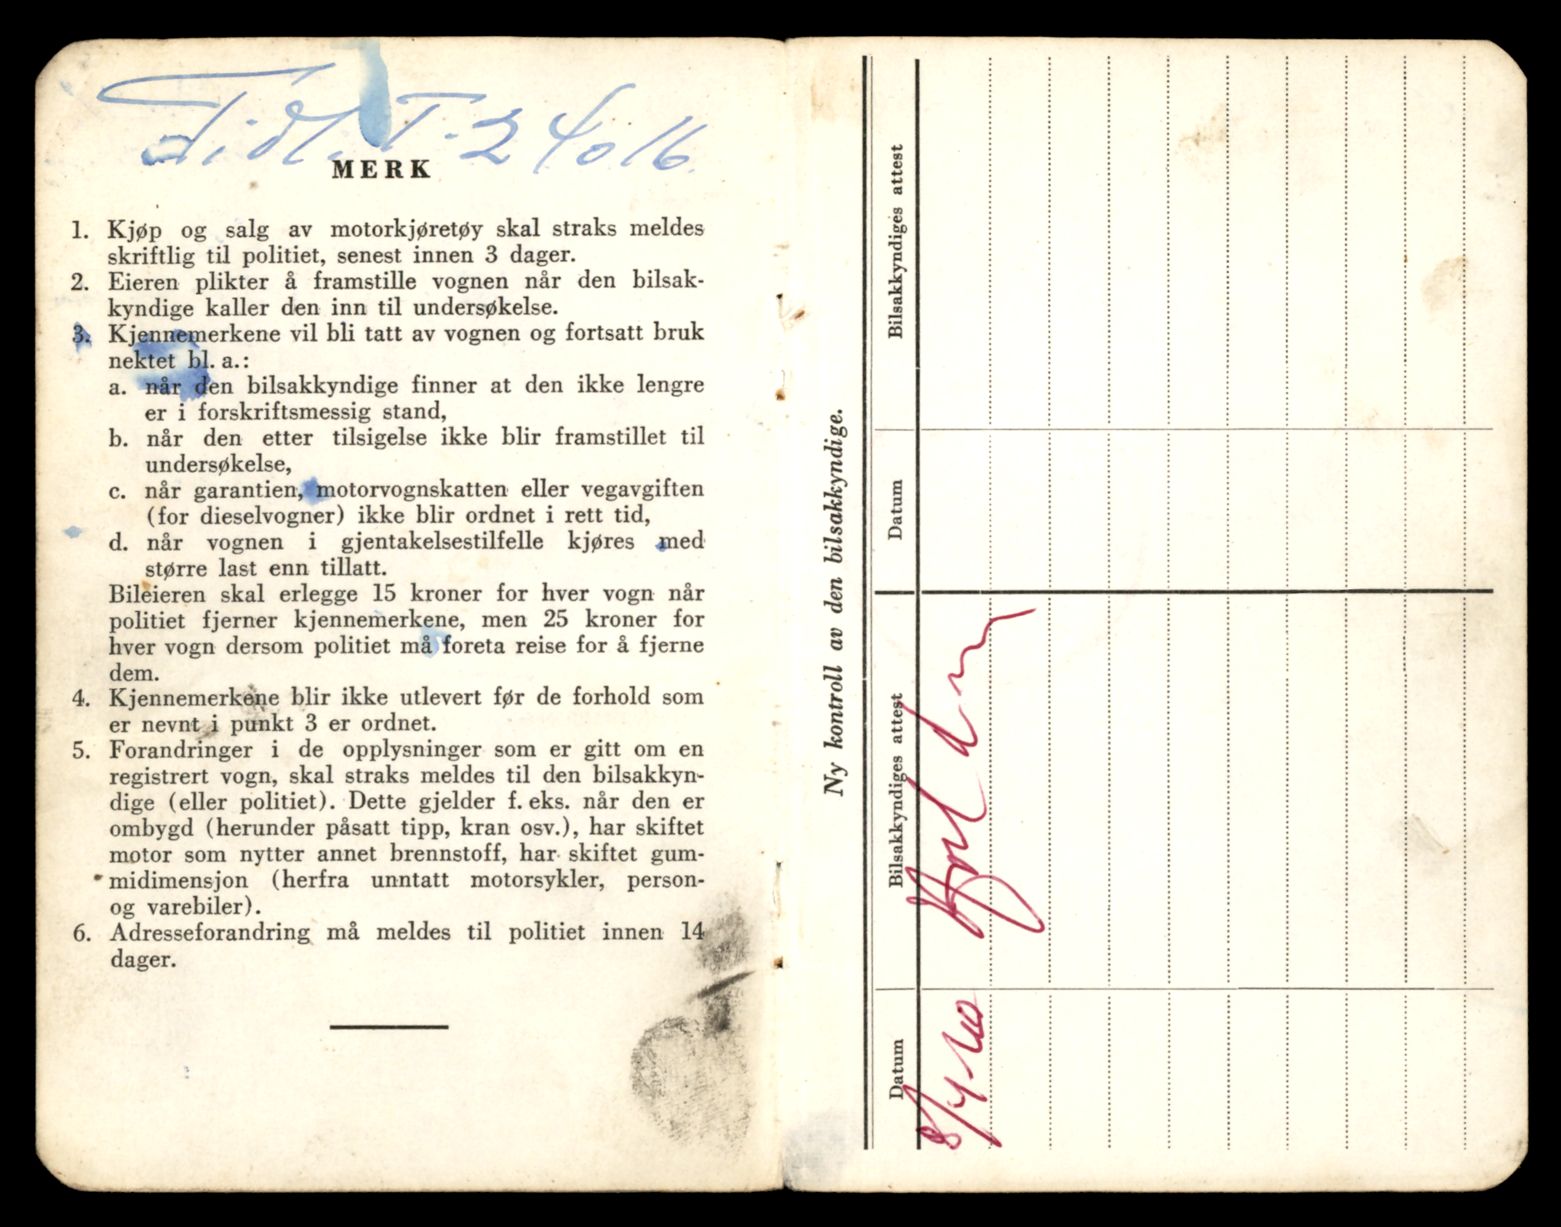 Tidl. T-24016
MERK
1. Kjøp og salg av motorkjøretøy skal straks meldes
skriftlig til politiet, senest innen 3 dager.
2. Eieren plikter å framstille vognen når den bilsak-
kyndige kaller den inn til undersøkelse.
3. Kjennemerkene vil bli tatt av vognen og fortsatt bruk
nektet bl. a.:
a. når den bilsakkyndige finner at den ikke lengre
er i forskriftsmessig stand,
b. når den etter tilsigelse ikke blir framstillet til
undersøkelse,
c. når garantien, motorvognskatten eller vegavgiften
(for dieselvogner) ikke blir ordnet i rett tid,
d. når vognen i gjentakelsestilfelle kjøres med
større last enn tillatt.
Bileieren skal erlegge 15 kroner for hver vogn når
politiet fjerner kjennemerkene, men 25 kroner for
hver vogn dersom politiet må foreta reise for å fjerne
dem.
4. Kjennemerkene blir ikke utlevert før de forhold som
er nevnt i punkt 3 er ordnet.
5. Forandringer i de opplysninger som er gitt om en
registrert vogn, skal straks meldes til den bilsakkyn-
dige (eller politiet). Dette gjelder f. eks. når den er
ombygd (herunder påsatt tipp, kran osv.), har skiftet
motor som nytter annet brennstoff, har skiftet gum-
midimensjon (herfra unntatt motorsykler, person-
og varebiler).
6. Adresseforandring må meldes til politiet innen 14
dager.
Ny kontroll av den bilsakkyndige.
Datum
Bilsakkyndiges attest
Datum
Bilsakkyndiges attest
8/4-60